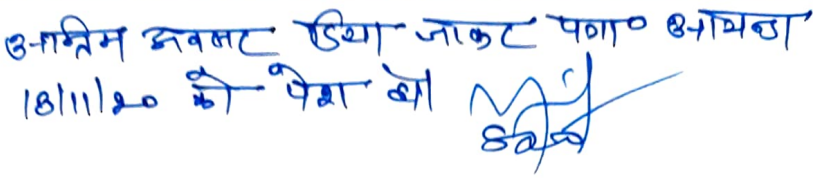 अन्तिम अवसर दिया जाकर पत्रा० आयन्दा
18/11/20 को पेश हो